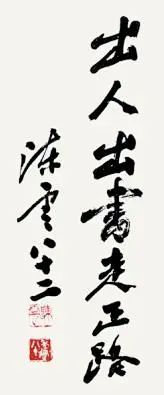 出人出書走正路
陈雲八十二